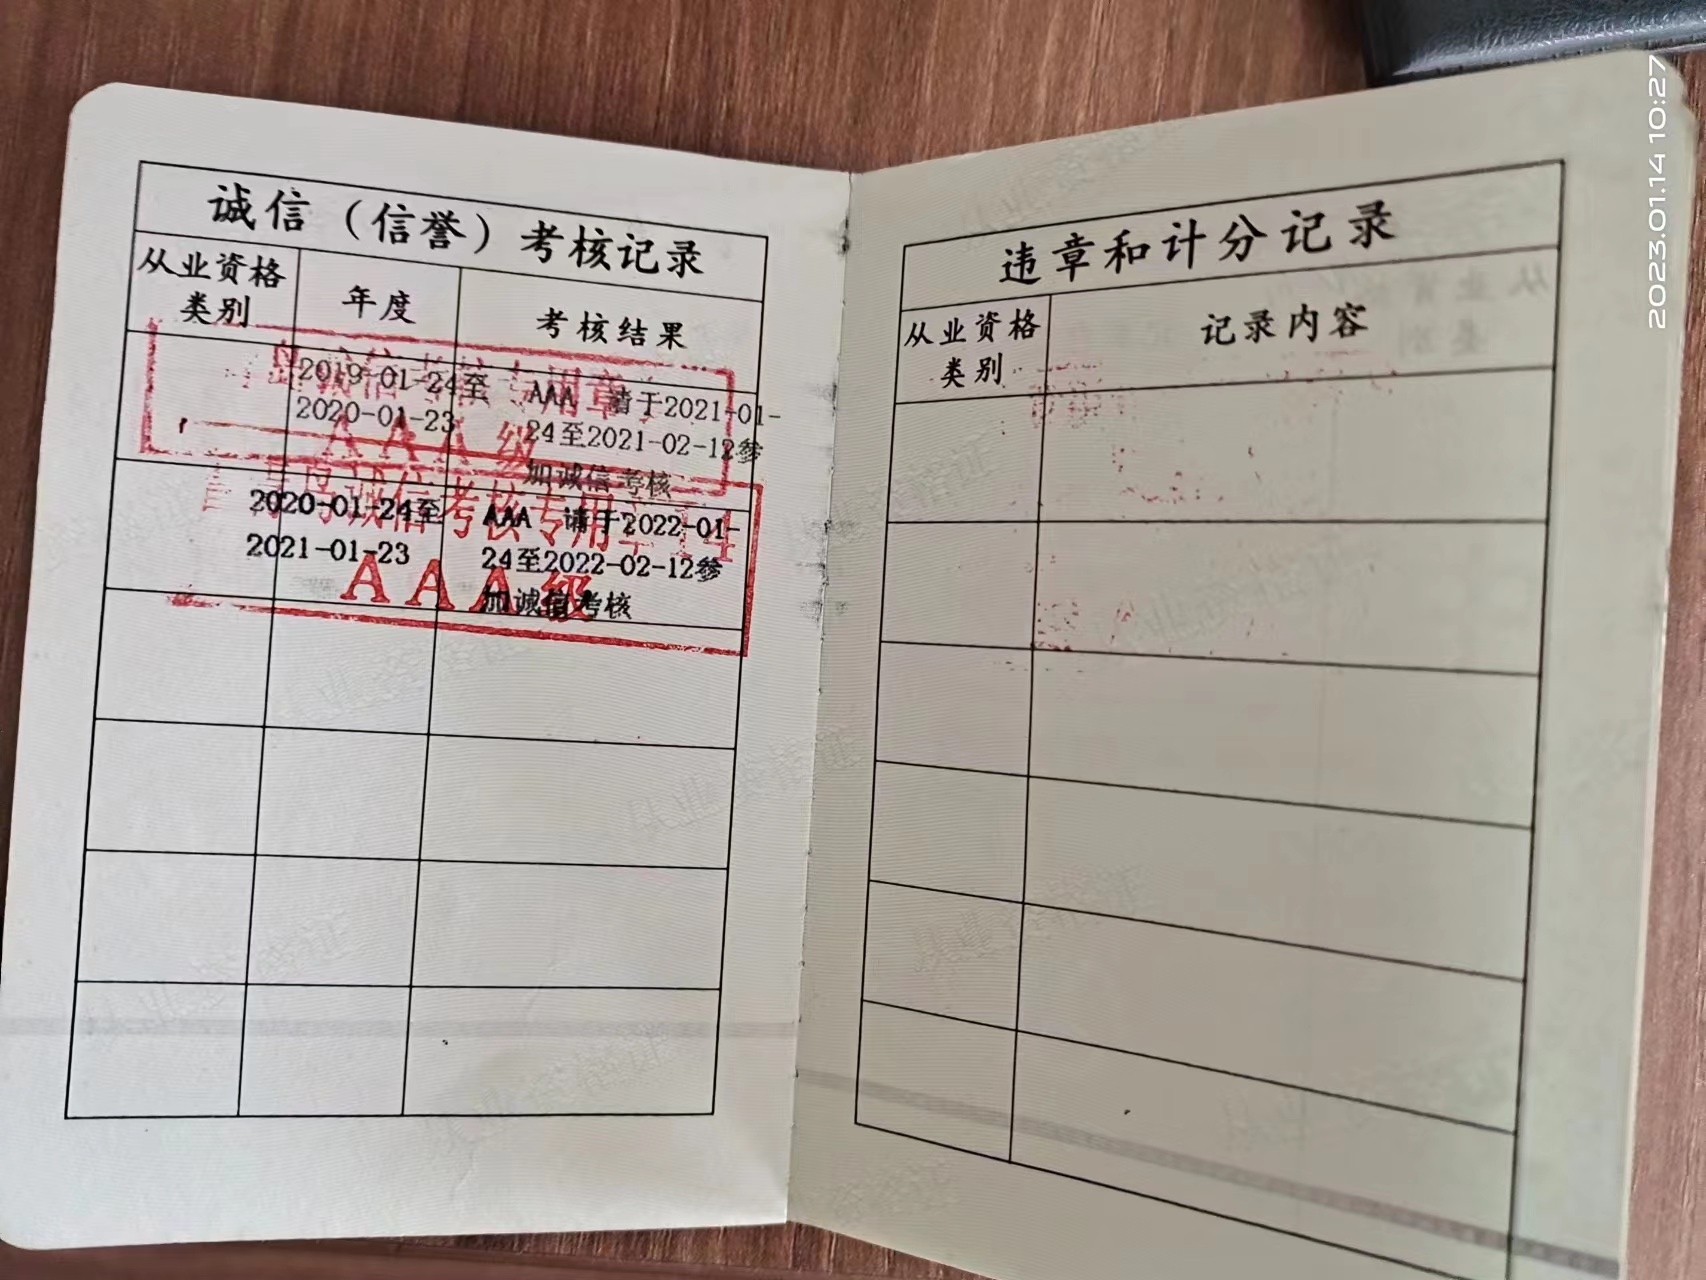 诚信（信誉）考核记录
从业资格
类别
年度
考核结果
诚信考核专用章
2019-01-24至
2020-01-23
AAA 请于2021-01-
24至2021-02-12参
加诚信考核
AAA级
诚信考核专用章
2020-01-24至
2021-01-23
AAA 请于2022-01-
24至2022-02-12参
加诚信考核
AAA级
违章和计分记录
从业资格
类别
记录内容
2023.01.14 10:27